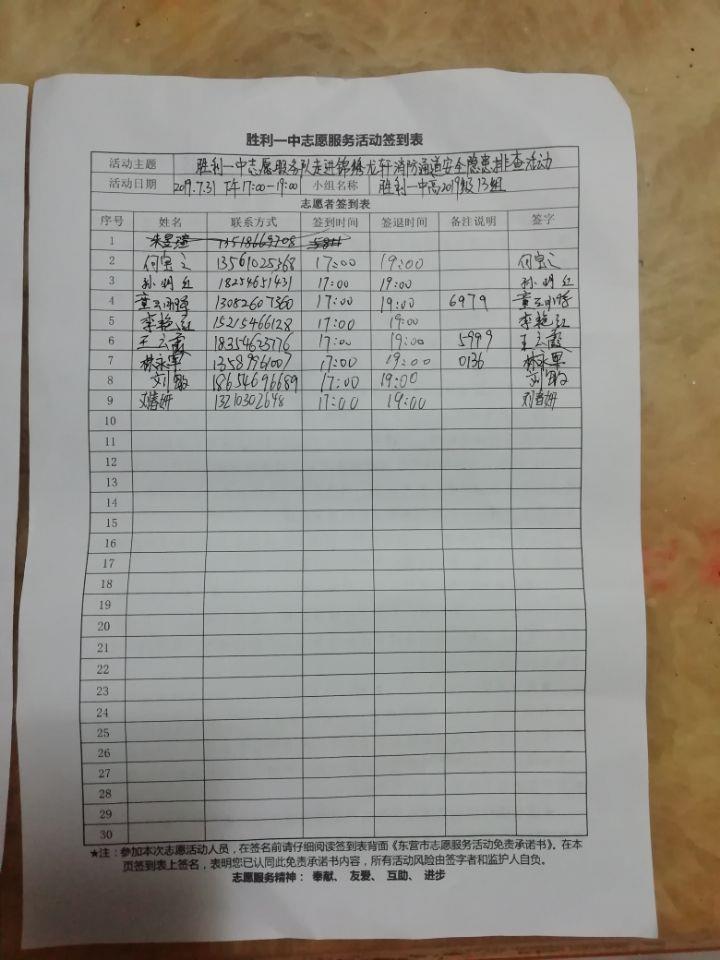 胜利一中志愿服务活动签到表
活动主题 胜利一中志愿服务队走进锦绣龙轩消防通道安全隐患排查活动
活动日期 2019.7.31 下午17:00-19:00 小组名称 胜利一中高2019级13组
志愿者签到表
序号 姓名 联系方式 签到时间 签退时间 备注说明 签字
1 13518669708
2 13561025368 17:00 19:00
3 孙明红 18254651431 17:00 19:00 孙明红
4 13082607360 17:00 19:00 6979
5 李艳红 15215466128 17:00 19:00 李艳红
6 王云霞 18354623776 17:00 19:00 5999 王云霞
7 林永军 13589961007 17:00 19:00 0136 林永军
8 刘敏 18654696689 17:00 19:00 刘敏
9 刘春妍 13210302648 17:00 19:00 刘春妍
10
11
12
13
14
15
16
17
18
19
20
21
22
23
24
25
26
27
28
29
30
★注：参加本次志愿活动人员，在签名前请仔细阅读签到表背面《东营市志愿服务活动免责承诺书》。在本
页签到表上签名，表明您已认同此免责承诺书内容，所有活动风险由签字者和监护人自负。
志愿服务精神： 奉献、 友爱、 互助、 进步